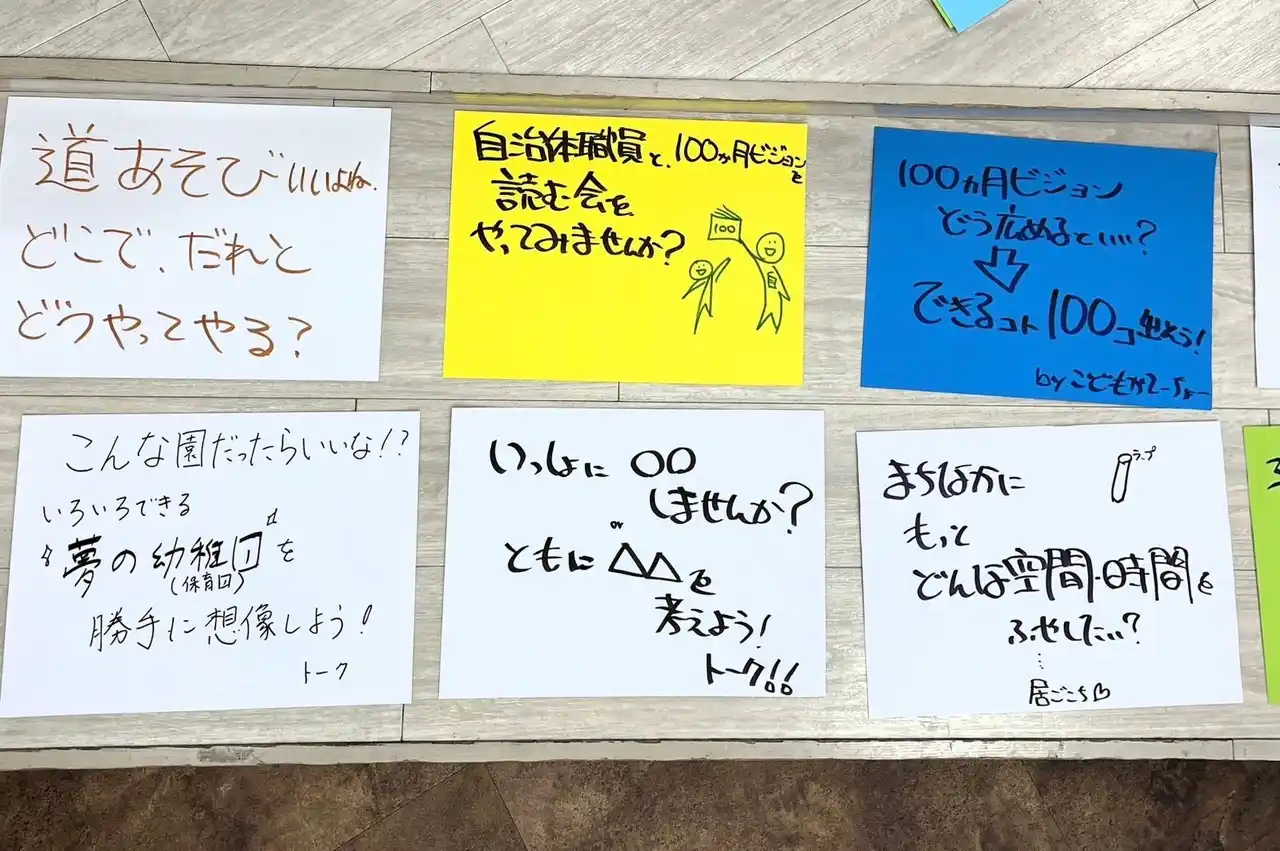 道あそびいいよね.
どこで、だれと
どうやってやる?
自治体職員と、100ヵ月ビジョンを
読む会を
やってみませんか?
100
自
100ヵ月ビジョン
どう広めるといい?
できるコト100コ出そう!
by こどもかてーちょー
こんな園だったらいいな!?
いろいろできる
夢の幼稚园を
(保育园)
勝手に想像しよう!
トーク
いっしょに ○○
しませんか?
or
ともに △△を
考えよう!
トーク!!
まちなかに
もっと
どんな空間・時間を
ふやしたい?
居ごこち♡